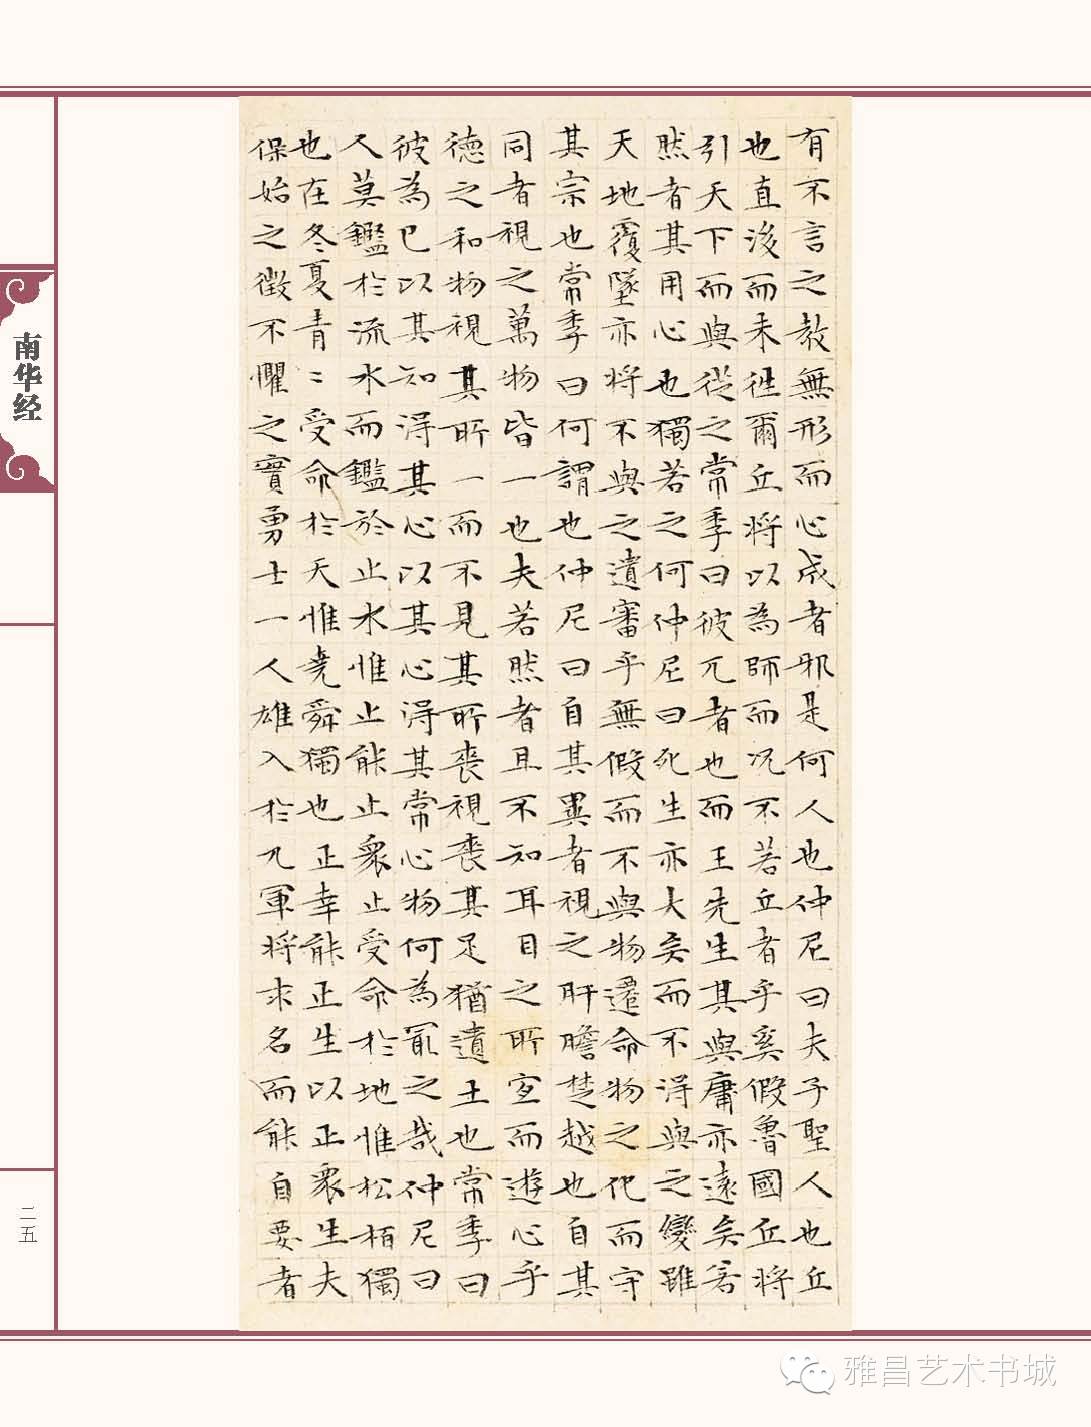 有不言之教無形而心成者邪是何人也仲尼曰夫子聖人也丘
也直後而未往爾丘將以為師而况不若丘者乎奚假魯國丘將
引天下而與從之常季曰彼兀者也而王先生其與庸亦遠矣若
然者其用心也獨若之何仲尼曰死生亦大矣而不得與之變雖
天地覆墜亦將不與之遺審乎無假而不與物遷命物之化而守
其宗也常季曰何謂也仲尼曰自其異者視之肝膽楚越也自其
同者視之萬物皆一也夫若然者且不知耳目之所宜而遊心乎
德之和物視其所一而不見其所喪視喪其足猶遺土也常季曰
彼為己以其知得其心以其心得其常心物何為冣之哉仲尼曰
人莫鑑於流水而鑑於止水惟止能止衆止受命於地惟松栢獨
也在冬夏青〻受命於天惟堯舜獨也正幸能正生以正衆生夫
保始之徵不懼之實勇士一人雄入於九軍將求名而能自要者
南华经
二五
雅昌艺术书城